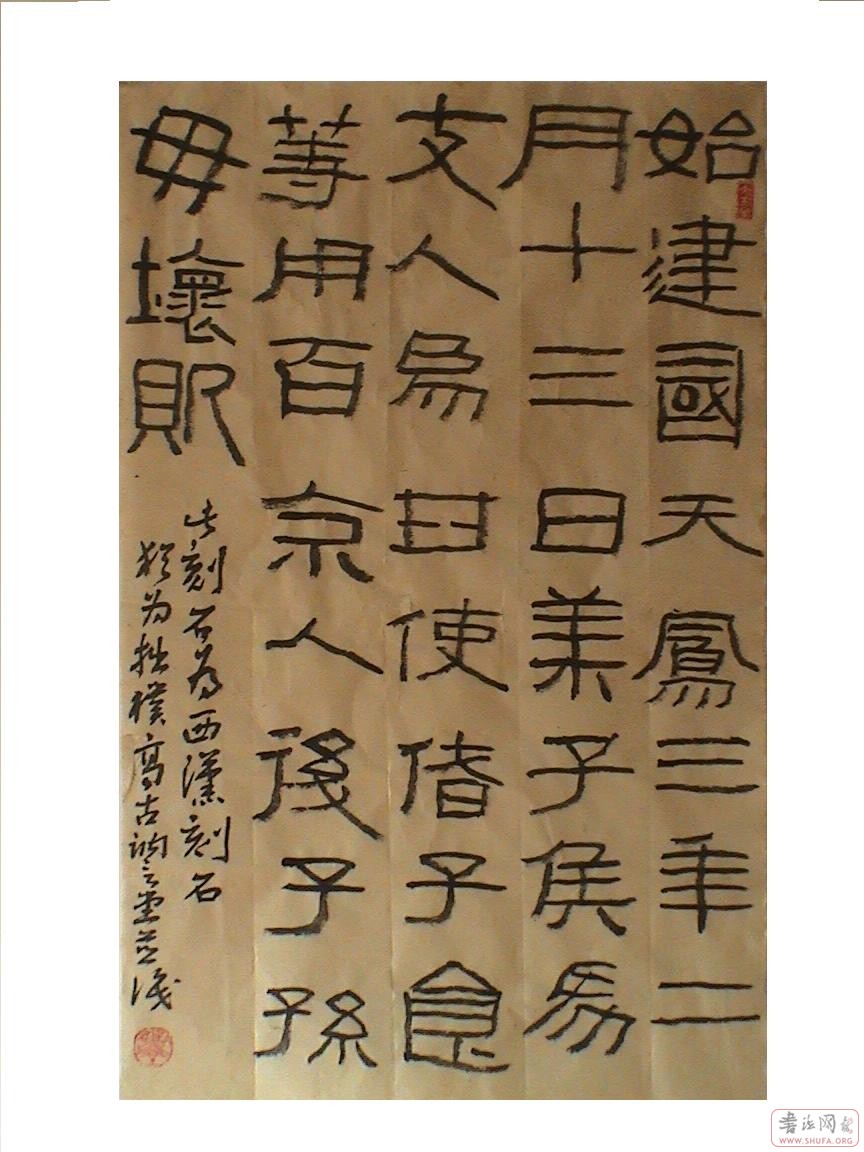 始建國天鳳三年二
月十三日萊子侯為
支人為封使偖子食
等用百余人後子孫
毋壞敗
此刻石為西漢刻石
為拙樸高古堂識
书法网
WWW.SHUFA.ORG